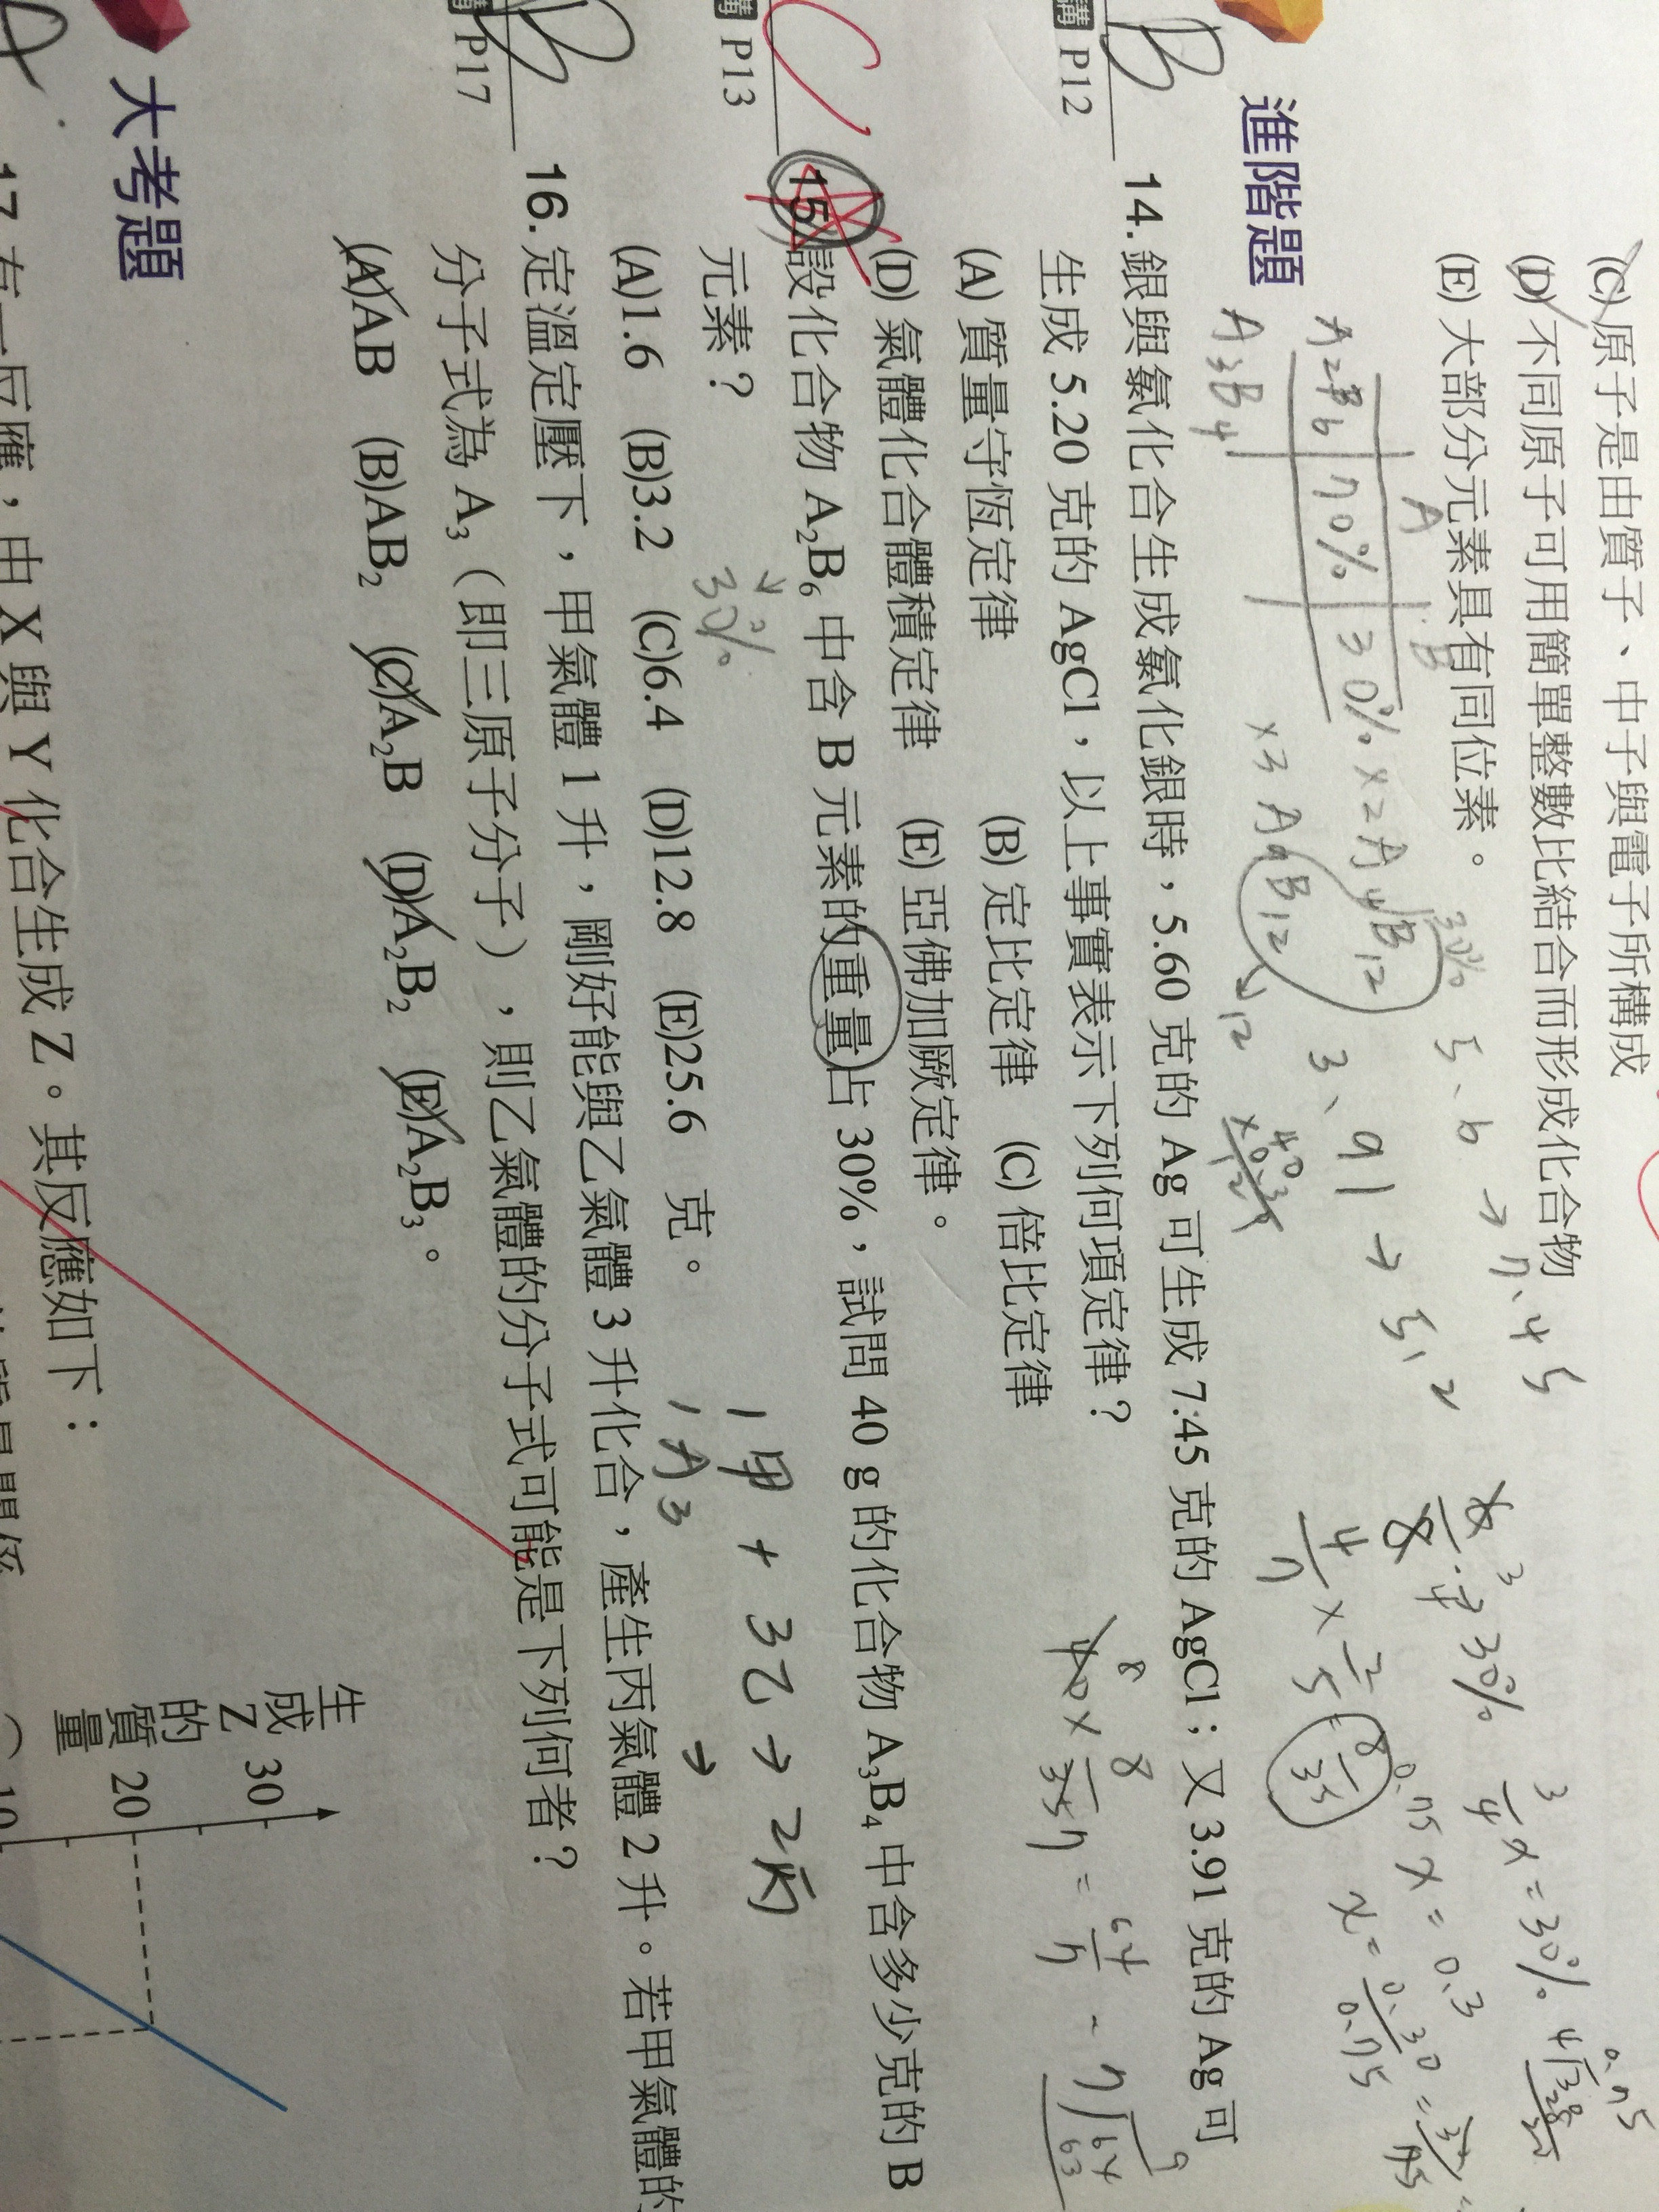 (C) 原子是由質子、中子與電子所構成
(D) 不同原子可用簡單整數比結合而形成化合物
(E) 大部分元素具有同位素。
進階題
A B
A2B6 70% 30%
A3B4
×2 A4B12
×3 A9B12 → 12
30%
B 14. 銀與氯化合生成氯化銀時，5.60 克的 Ag 可生成 7.45 克的 AgCl；又 3.91 克的 Ag 可
講 P12
生成 5.20 克的 AgCl，以上事實表示下列何項定律？
(A) 質量守恆定律 (B) 定比定律 (C) 倍比定律
(D) 氣體化合體積定律 (E) 亞佛加厥定律。
C 15. 設化合物 A₂B₆ 中含 B 元素的重量占 30%，試問 40 g 的化合物 A₃B₄ 中含多少克的 B
講 P13
元素？
30%
(A)1.6 (B)3.2 (C)6.4 (D)12.8 (E)25.6 克。
1甲 + 3乙 → 2丙
1A3 →
B 16. 定溫定壓下，甲氣體 1 升，剛好能與乙氣體 3 升化合，產生丙氣體 2 升。若甲氣體的
講 P17
分子式為 A₃（即三原子分子），則乙氣體的分子式可能是下列何者？
(A)AB (B)AB₂ (C)A₂B (D)A₂B₂ (E)A₂B₃。
大考題
有一反應，由 X 與 Y 化合生成 Z。其反應如下：
生成Z的質量
30
20
10